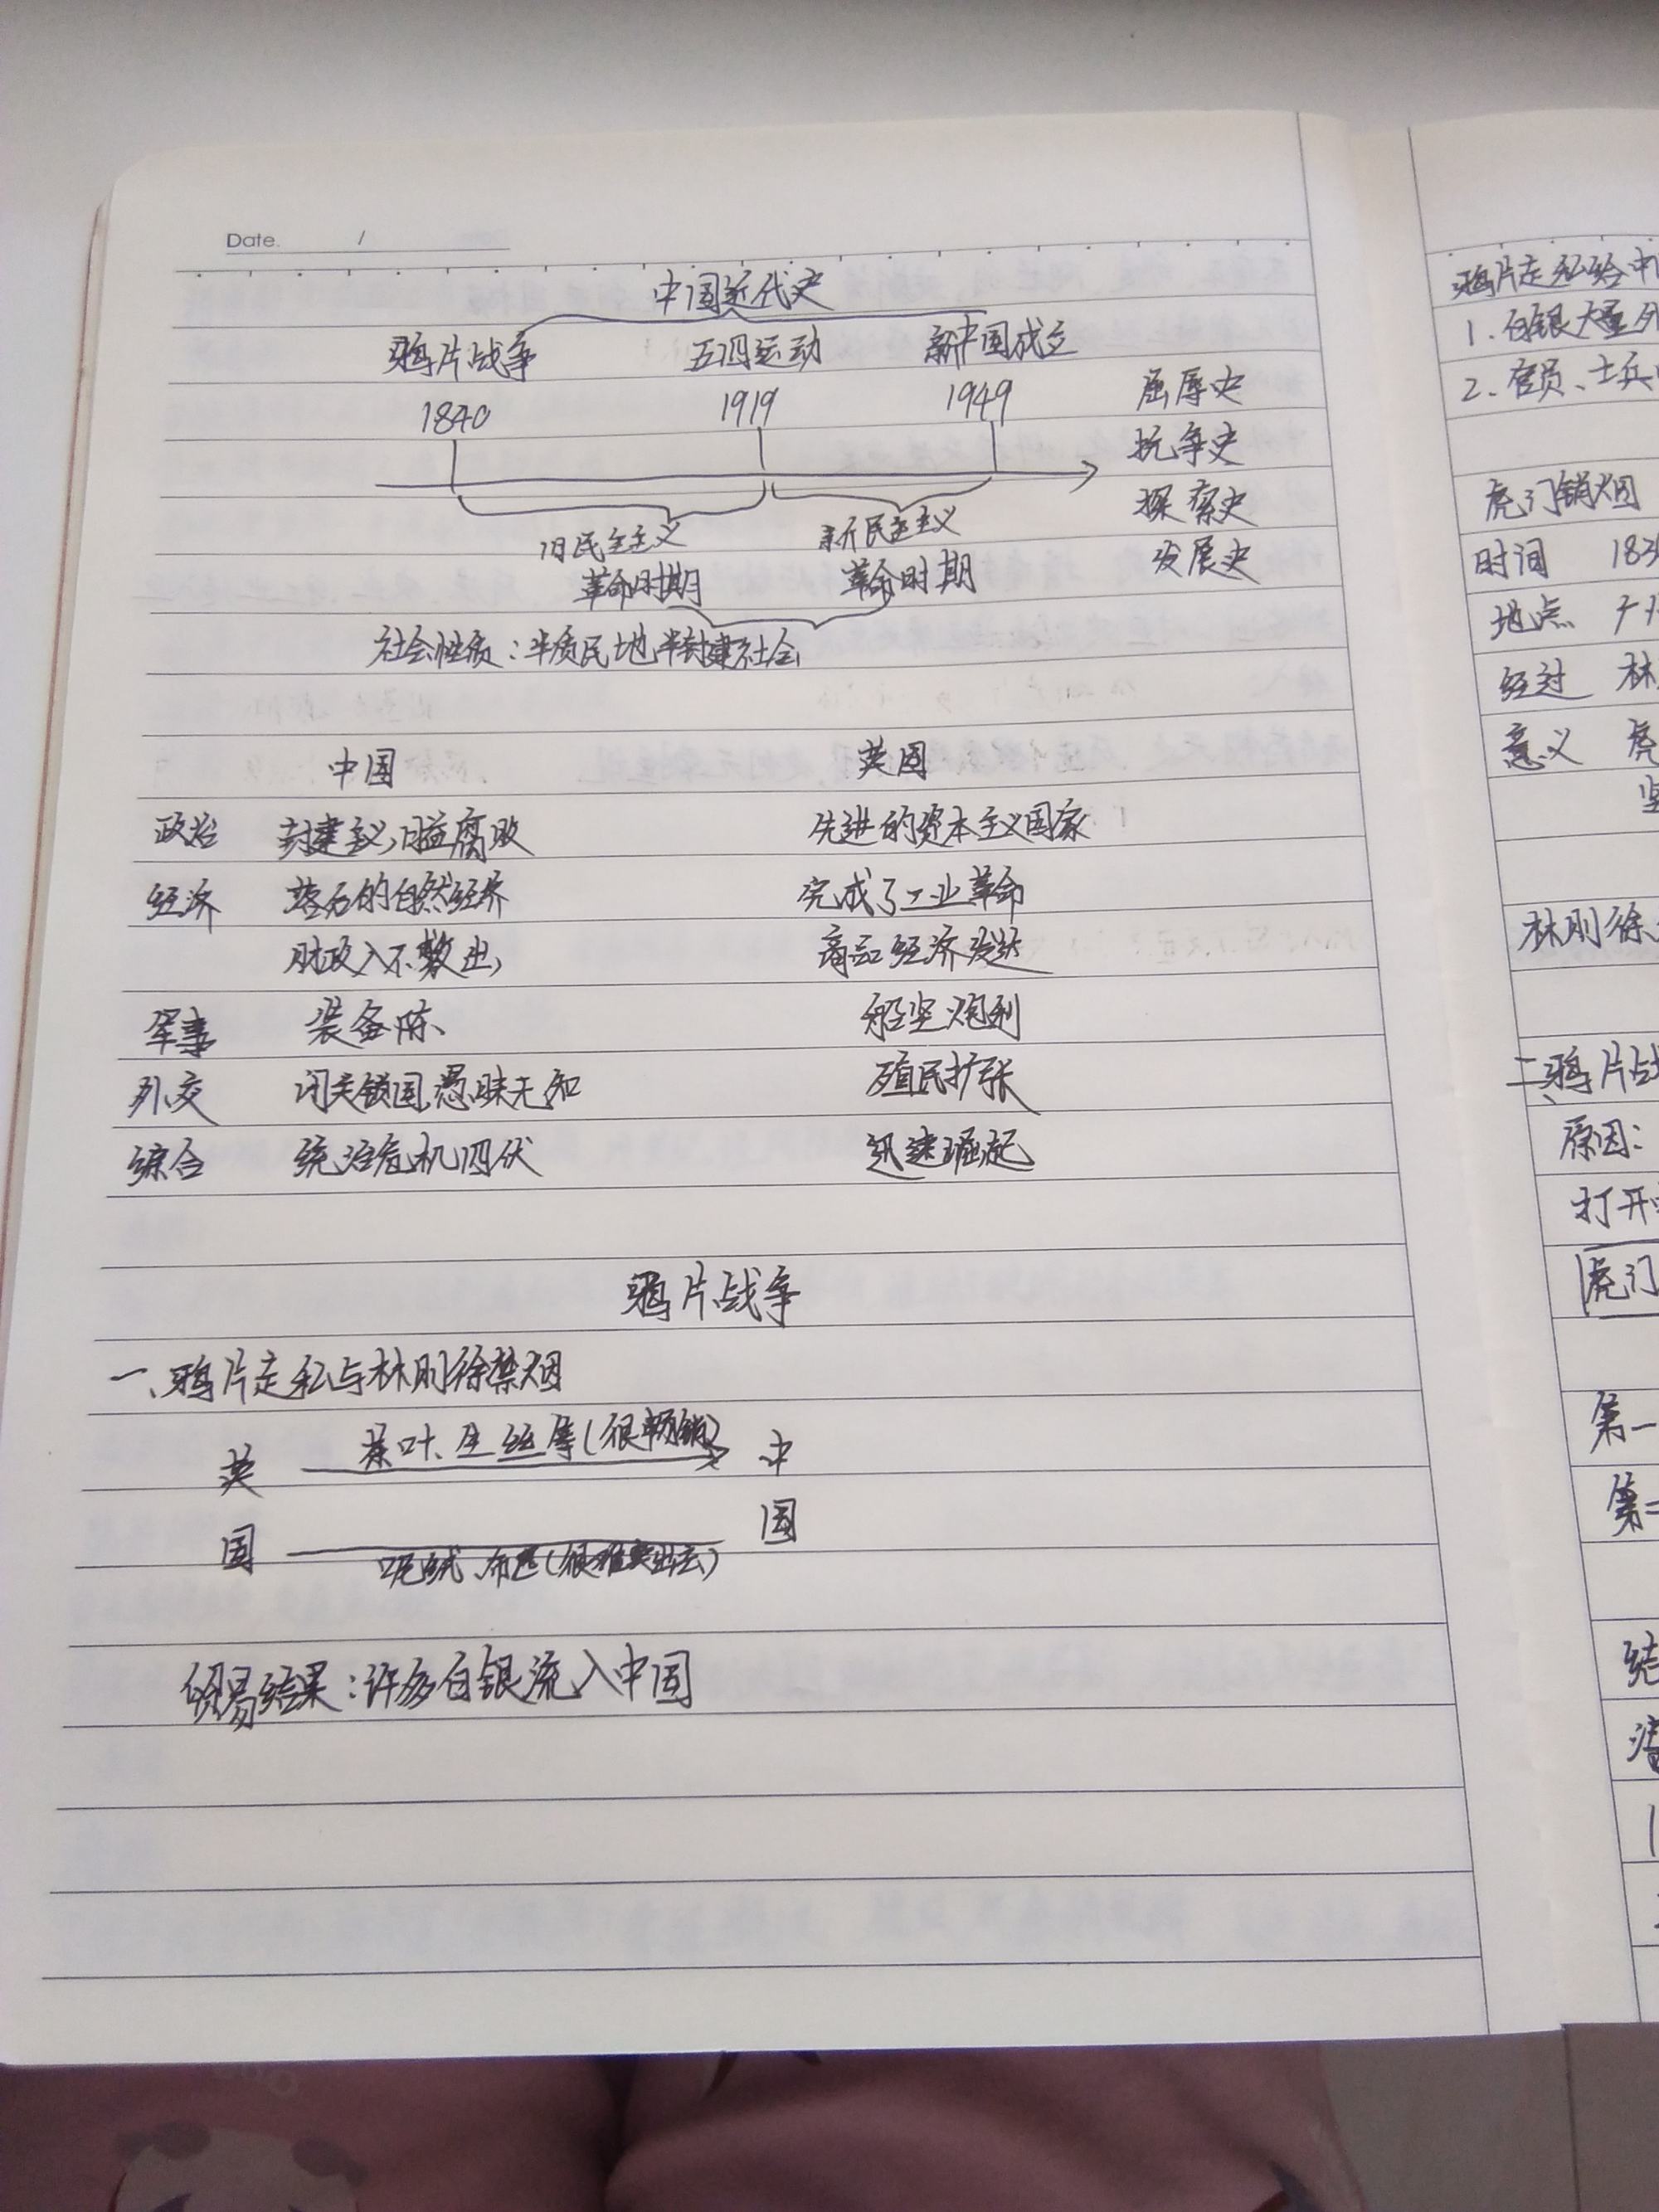 Date. /
中国近代史
鸦片战争 五四运动 新中国成立
1840 1919 1949 屈辱史
抗争史
探索史
旧民主主义 新民主主义
革命时期 革命时期 发展史
社会性质:半质民地半封建社会
中国 英国
政治 封建主义,日益腐败 先进的资本主义国家
经济 落后的自然经济 完成了工业革命
财政入不敷出, 商品经济发达
军事 装备陈、 船坚炮利
外交 闭关锁国,愚昧无知 殖民扩张
综合 统治危机四伏 迅速崛起
鸦片战争
一、鸦片走私与林则徐禁烟
英 茶叶、生丝等(很畅销) 中
国 国
呢绒、布匹(很难卖出去)
贸易结果:许多白银流入中国
鸦片走私给中
1. 白银大量外
2. 官员、士兵
虎门销烟
时间 183
地点 广
经过 林
意义 虎
坚
林则徐
二、鸦片战
原因:
打开
虎门
第一
第二
结
清
1